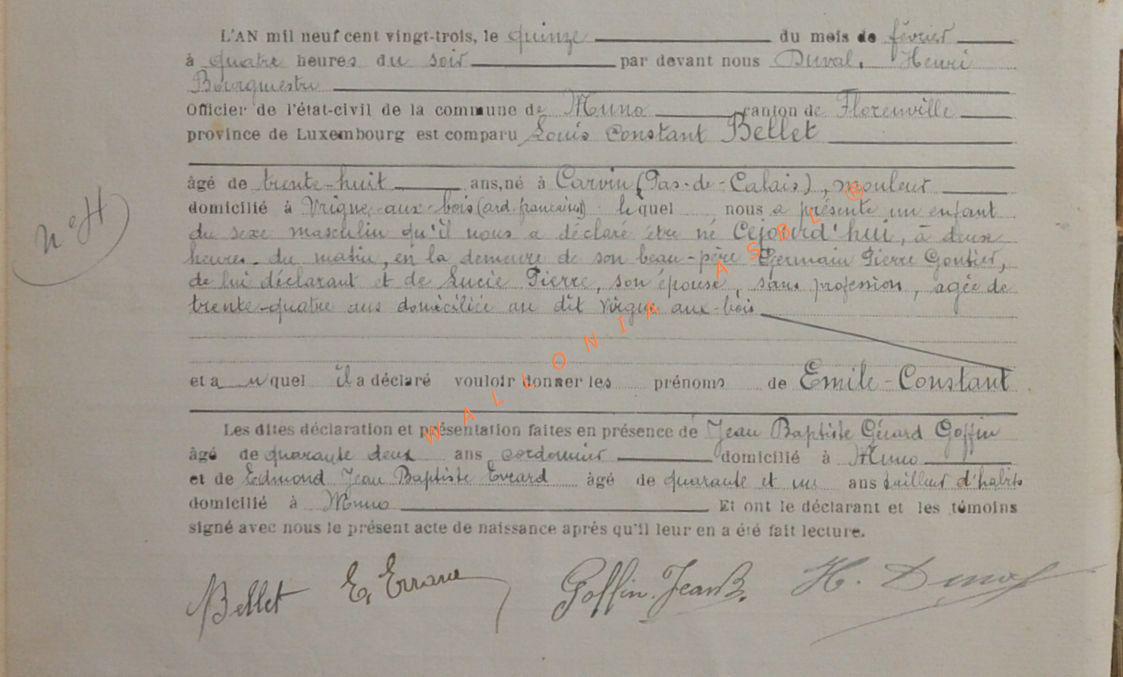 L'AN mil neuf cent vingt-trois, le quinze du mois de février
à quatre heures du soir par devant nous Duval, Henri
Bourgmestre
Officier de l'état-civil de la commune de Muno canton de Florenville
province de Luxembourg est comparu Louis Constant Bellet
âgé de trente-huit ans, né à Carvin (Pas-de-Calais), mouleur
domicilié à Vrigne-aux-bois (ard. françaises) lequel nous a présenté un enfant
du sexe masculin qu'il nous a déclaré être né Cejourd'hui, à deux
heures du matin, en la demeure de son beau-père Germain Pierre Gontier,
de lui déclarant et de Lucie Pierre, son épouse, sans profession, agée de
trente-quatre ans domiciliée au dit Vrigne aux-bois
et auquel il a déclaré vouloir donner les prénoms de Emile-Constant
Les dites déclaration et présentation faites en présence de Jean Baptiste Gérard Goffin
âgé de quarante deux ans cordonnier domicilié à Muno
et de Edmond Jean Baptiste Evrard âgé de quarante et un ans tailleur d'habits
domicilié à Muno Et ont le déclarant et les témoins
signé avec nous le présent acte de naissance après qu'il leur en a été fait lecture.
n e H
Bellet E. Goffin. Jean B. H. Duval
WALONIA ASBL ©